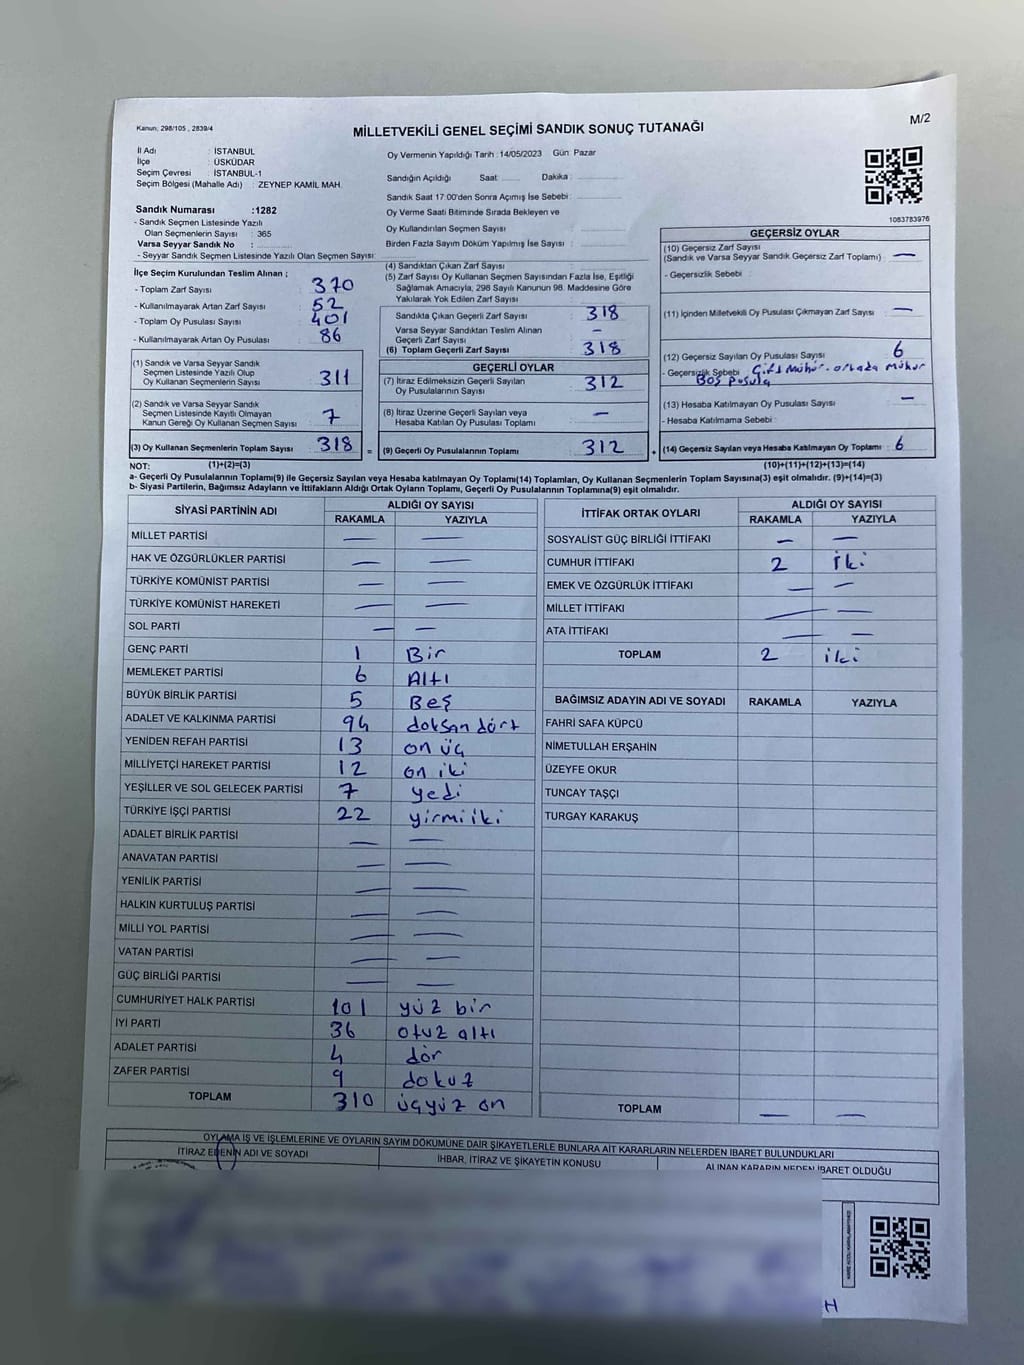 Kanun, 298/105 , 2839/4
MİLLETVEKİLİ GENEL SEÇİMİ SANDIK SONUÇ TUTANAĞI
M/2
İl Adı : İSTANBUL
İlçe : ÜSKÜDAR
Seçim Çevresi : İSTANBUL-1
Seçim Bölgesi (Mahalle Adı) : ZEYNEP KAMİL MAH.
Oy Vermenin Yapıldığı Tarih : 14/05/2023 Gün: Pazar
Sandığın Açıldığı Saat : Dakika :
Sandık Saat 17:00'den Sonra Açımış İse Sebebi :
Sandık Numarası :1282
- Sandık Seçmen Listesinde Yazılı
Olan Seçmenlerin Sayısı : 365
Varsa Seyyar Sandık No :
- Seyyar Sandık Seçmen Listesinde Yazılı Olan Seçmen Sayısı:
Oy Verme Saati Bitiminde Sırada Bekleyen ve
Oy Kullandırılan Seçmen Sayısı :
Birden Fazla Sayım Döküm Yapılmış İse Sayısı :
1083783976
İlçe Seçim Kurulundan Teslim Alınan ;
- Toplam Zarf Sayısı : 370
- Kullanılmayarak Artan Zarf Sayısı : 52
- Toplam Oy Pusulası Sayısı : 401
- Kullanılmayarak Artan Oy Pusulası : 86
(1) Sandık ve Varsa Seyyar Sandık
Seçmen Listesinde Yazılı Olup
Oy Kullanan Seçmenlerin Sayısı : 311
(2) Sandık ve Varsa Seyyar Sandık
Seçmen Listesinde Kayıtlı Olmayan
Kanun Gereği Oy Kullanan Seçmen Sayısı : 7
(3) Oy Kullanan Seçmenlerin Toplam Sayısı : 318
(4) Sandıktan Çıkan Zarf Sayısı :
(5) Zarf Sayısı Oy Kullanan Seçmen Sayısından Fazla İse, Eşitliği
Sağlamak Amacıyla, 298 Sayılı Kanunun 98. Maddesine Göre
Yakılarak Yok Edilen Zarf Sayısı :
Sandıkta Çıkan Geçerli Zarf Sayısı : 318
Varsa Seyyar Sandıktan Teslim Alınan
Geçerli Zarf Sayısı : –
(6) Toplam Geçerli Zarf Sayısı : 318
GEÇERLİ OYLAR
(7) İtiraz Edilmeksizin Geçerli Sayılan
Oy Pusulalarının Sayısı : 312
(8) İtiraz Üzerine Geçerli Sayılan veya
Hesaba Katılan Oy Pusulası Toplamı : –
= (9) Geçerli Oy Pusulalarının Toplamı : 312
GEÇERSİZ OYLAR
(10) Geçersiz Zarf Sayısı
(Sandık ve Varsa Seyyar Sandık Geçersiz Zarf Toplamı) : –
- Geçersizlik Sebebi :
(11) İçinden Milletvekili Oy Pusulası Çıkmayan Zarf Sayısı : –
(12) Geçersiz Sayılan Oy Pusulası Sayısı : 6
- Geçersizlik Sebebi : Çift Mühür - ortada mühür
Boş Pusula
(13) Hesaba Katılmayan Oy Pusulası Sayısı : –
- Hesaba Katılmama Sebebi :
+ (14) Geçersiz Sayılan veya Hesaba Katılmayan Oy Toplamı : 6
NOT: (1)+(2)=(3) (10)+(11)+(12)+(13)=(14)
a- Geçerli Oy Pusulalarının Toplamı(9) ile Geçersiz Sayılan veya Hesaba katılmayan Oy Toplamı(14) Toplamları, Oy Kullanan Seçmenlerin Toplam Sayısına(3) eşit olmalıdır. (9)+(14)=(3)
b- Siyasi Partilerin, Bağımsız Adayların ve İttifakların Aldığı Ortak Oyların Toplamı, Geçerli Oy Pusulalarının Toplamına(9) eşit olmalıdır.
SİYASİ PARTİNİN ADI ALDIĞI OY SAYISI
RAKAMLA YAZIYLA
MİLLET PARTİSİ – –
HAK VE ÖZGÜRLÜKLER PARTİSİ – –
TÜRKİYE KOMÜNİST PARTİSİ – –
TÜRKİYE KOMÜNİST HAREKETİ – –
SOL PARTİ – –
GENÇ PARTİ 1 Bir
MEMLEKET PARTİSİ 6 Altı
BÜYÜK BİRLİK PARTİSİ 5 Beş
ADALET VE KALKINMA PARTİSİ 94 doksan dört
YENİDEN REFAH PARTİSİ 13 on üç
MİLLİYETÇİ HAREKET PARTİSİ 12 on iki
YEŞİLLER VE SOL GELECEK PARTİSİ 7 yedi
TÜRKİYE İŞÇİ PARTİSİ 22 yirmi iki
ADALET BİRLİK PARTİSİ – –
ANAVATAN PARTİSİ – –
YENİLİK PARTİSİ – –
HALKIN KURTULUŞ PARTİSİ – –
MİLLİ YOL PARTİSİ – –
VATAN PARTİSİ – –
GÜÇ BİRLİĞİ PARTİSİ – –
CUMHURİYET HALK PARTİSİ 101 yüz bir
İYİ PARTİ 36 otuz altı
ADALET PARTİSİ 4 dör
ZAFER PARTİSİ 9 dokuz
TOPLAM 310 üçyüz on
İTTİFAK ORTAK OYLARI ALDIĞI OY SAYISI
RAKAMLA YAZIYLA
SOSYALİST GÜÇ BİRLİĞİ İTTİFAKI – –
CUMHUR İTTİFAKI 2 iki
EMEK VE ÖZGÜRLÜK İTTİFAKI – –
MİLLET İTTİFAKI – –
ATA İTTİFAKI – –
TOPLAM 2 iki
BAĞIMSIZ ADAYIN ADI VE SOYADI RAKAMLA YAZIYLA
FAHRİ SAFA KÜPCÜ
NİMETULLAH ERŞAHİN
ÜZEYFE OKUR
TUNCAY TAŞÇI
TURGAY KARAKUŞ
TOPLAM – –
OYLAMA İŞ VE İŞLEMLERİNE VE OYLARIN SAYIM DÖKÜMÜNE DAİR ŞİKAYETLERLE BUNLARA AİT KARARLARIN NELERDEN İBARET BULUNDUKLARI
İTİRAZ EDENİN ADI VE SOYADI İHBAR, İTİRAZ VE ŞİKAYETİN KONUSU ALINAN KARARIN NEDEN İBARET OLDUĞU
H